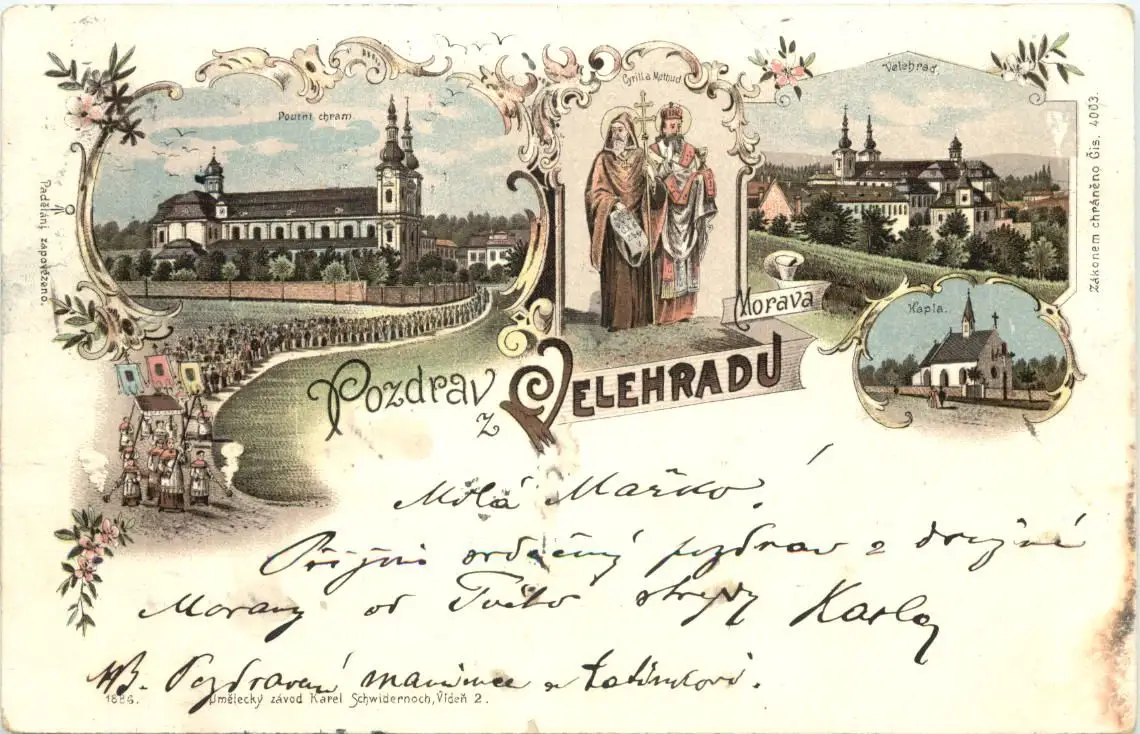 Poutní chrám
Cyrill a Methud
Velehrad.
Padělání zapovězeno.
Zákonem chráněno Čís. 4003.
Morava
Kaple.
Pozdrav
z VELEHRADU
Milá Mařko!
Přijmi srdečný pozdrav z
Moravy od Tvého strejdy Karla
NB. Pozdravení mamince a tatínkovi.
1886. Umělecký závod Karel Schwidernoch, Vídeň 2.